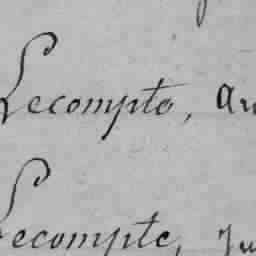 Lecompte, Au
Lecompte, Ju